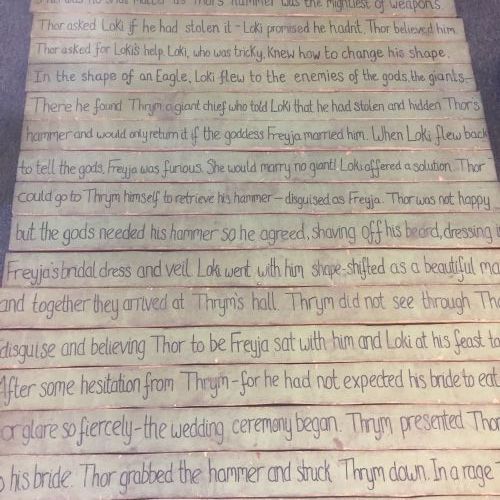 was Thor's hammer was the mightiest of weapons.
Thor asked Loki if he had stolen it - Loki promised he hadn't. Thor believed him.
Thor asked for Loki's help. Loki, who was tricky, knew how to change his shape.
In the shape of an Eagle, Loki flew to the enemies of the gods, the giants-
There he found Thrym a giant chief who told Loki that he had stolen and hidden Thor's
hammer and would only return it if the goddess Freyja married him. When Loki flew back
to tell the gods, Freyja was furious. She would marry no giant! Loki offered a solution. Thor
could go to Thrym himself to retrieve his hammer - disguised as Freyja. Thor was not happy
but the gods needed his hammer so he agreed, shaving off his beard, dressing
Freyja's bridal dress and veil. Loki went with him shape-shifted as a beautiful
and together they arrived at Thrym's hall. Thrym did not see through
disguise and believing Thor to be Freyja sat with him and Loki at his feast
After some hesitation from Thrym - for he had not expected his bride to eat
or glare so fiercely - the wedding ceremony began. Thrym presented Thor
his bride. Thor grabbed the hammer and struck Thrym down. In a rage